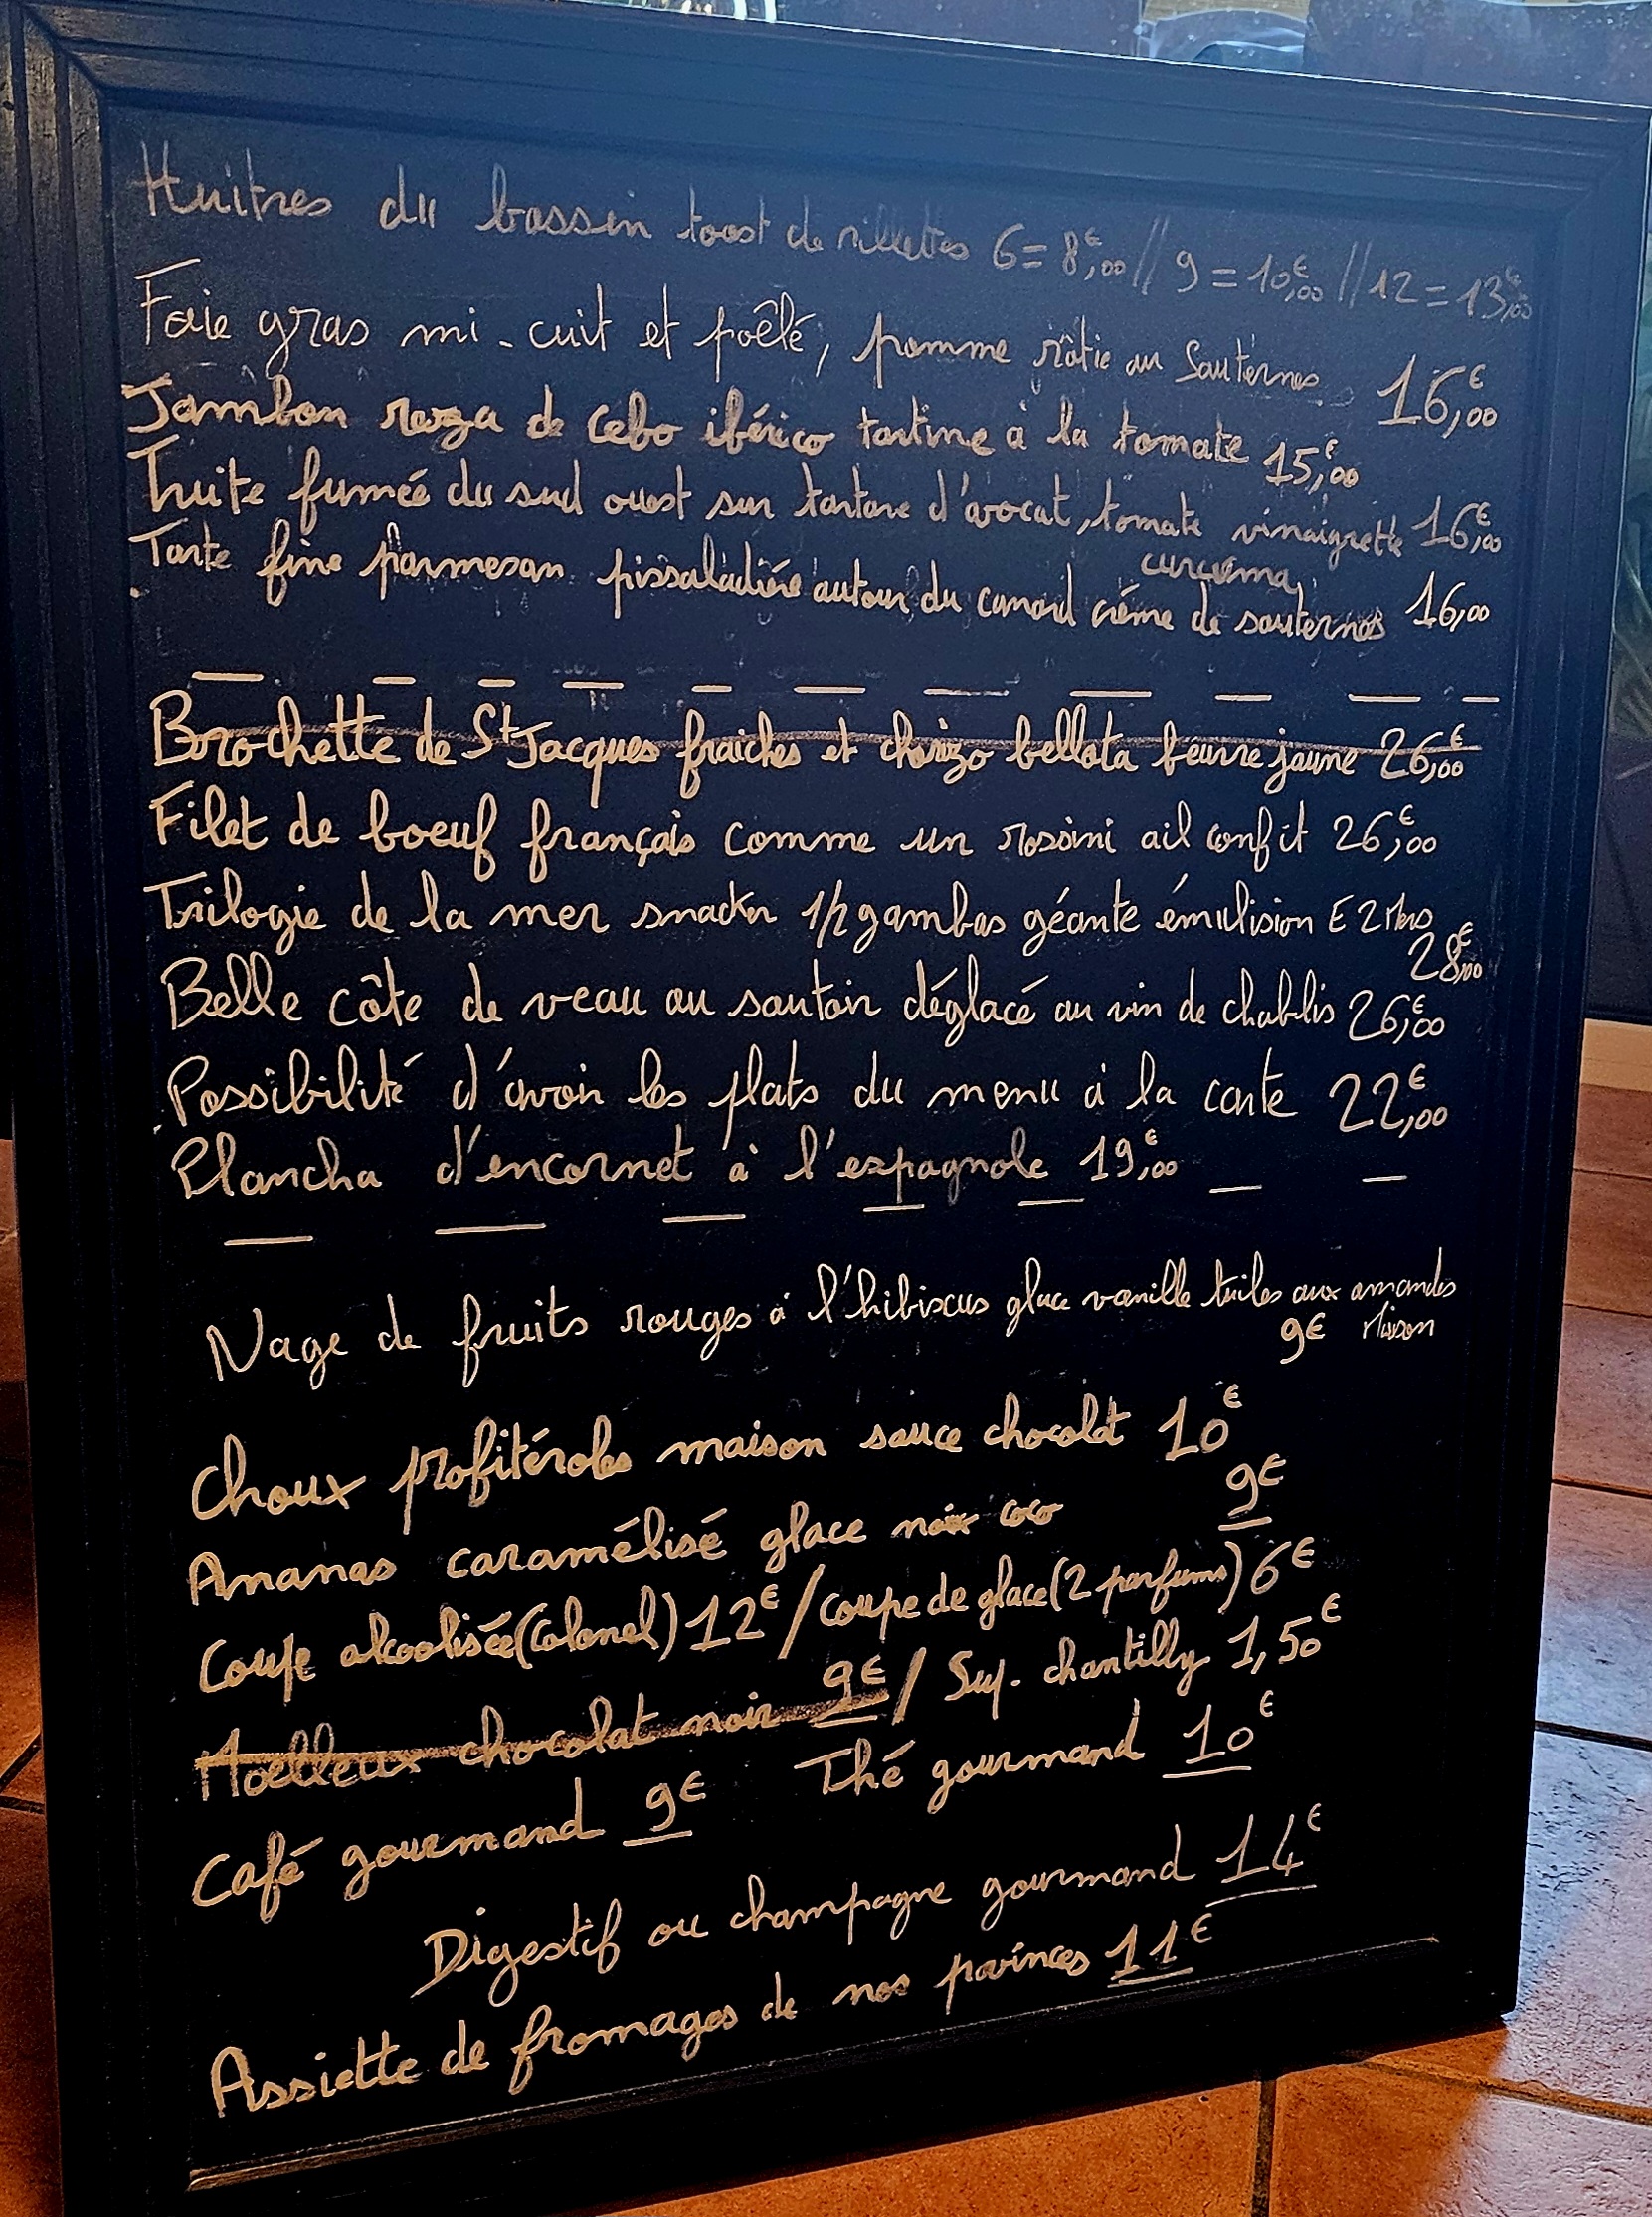 Huitres du bassin toast de rillettes 6=8€,00 // 9=10€,00 // 12=13€,00
Foie gras mi-cuit et poêlé, pomme rôtie au Sauternes 16€,00
Jambon reza de cebo ibérico tartine à la tomate 15€,00
Truite fumée du sud ouest sur tartare d'avocat, tomate vinaigrette 16€,00
curcuma
Tarte fine parmesan pissaladière autour du canard crème de sauternes 16,00
Brochette de St Jacques fraiches et chorizo bellota beurre jaune 26€,00
Filet de boeuf français comme un rossini ail confit 26€,00
Trilogie de la mer snacker 1/2 gambas géante émulsion E 2 Mers
28€,00
Belle côte de veau au sautoir déglacé au vin de chablis 26€,00
Possibilité d'avoir les plats du menu à la carte 22€,00
Plancha d'encornet à l'espagnole 19€,00
Nage de fruits rouges à l'hibiscus glace vanille tuiles aux amandes
9€ Maison
Choux profitéroles maison sauce chocolat 10€
Ananas caramélisé glace noix coco 9€
Coupe alcoolisée (Colonel) 12€ / coupe de glace (2 parfums) 6€
Moelleux chocolat noir 9€ / Sup. chantilly 1,50€
Café gourmand 9€ Thé gourmand 10€
Digestif ou champagne gourmand 14€
Assiette de fromages de nos povinces 11€